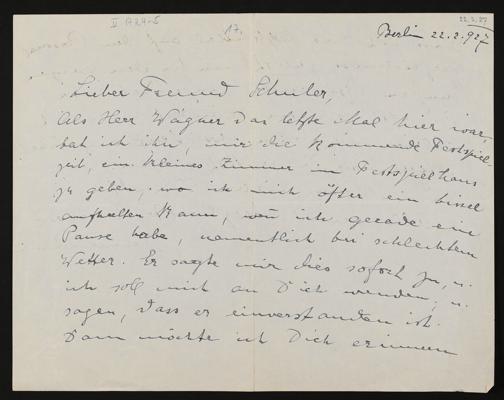 II 1729-5
17.
22.2.27
Berlin 22.2.927
Lieber Freund Schuler,
Als Herr Wagner das letzte Mal hier war,
bat ich ihn, mir die kommende Festspiel
zeit, ein kleines Zimmer im Festspielhaus
zu geben, wo ich mich öfter ein bissel
aufhalten kann, wenn ich gerade eine
Pause habe, namentlich bei schlechtem
Wetter. Er sagte mir dies sofort zu, u.
ich soll mich an Dich wenden, u.
sagen, dass er einverstanden ist.
Dann möchte ich Dich erinnern